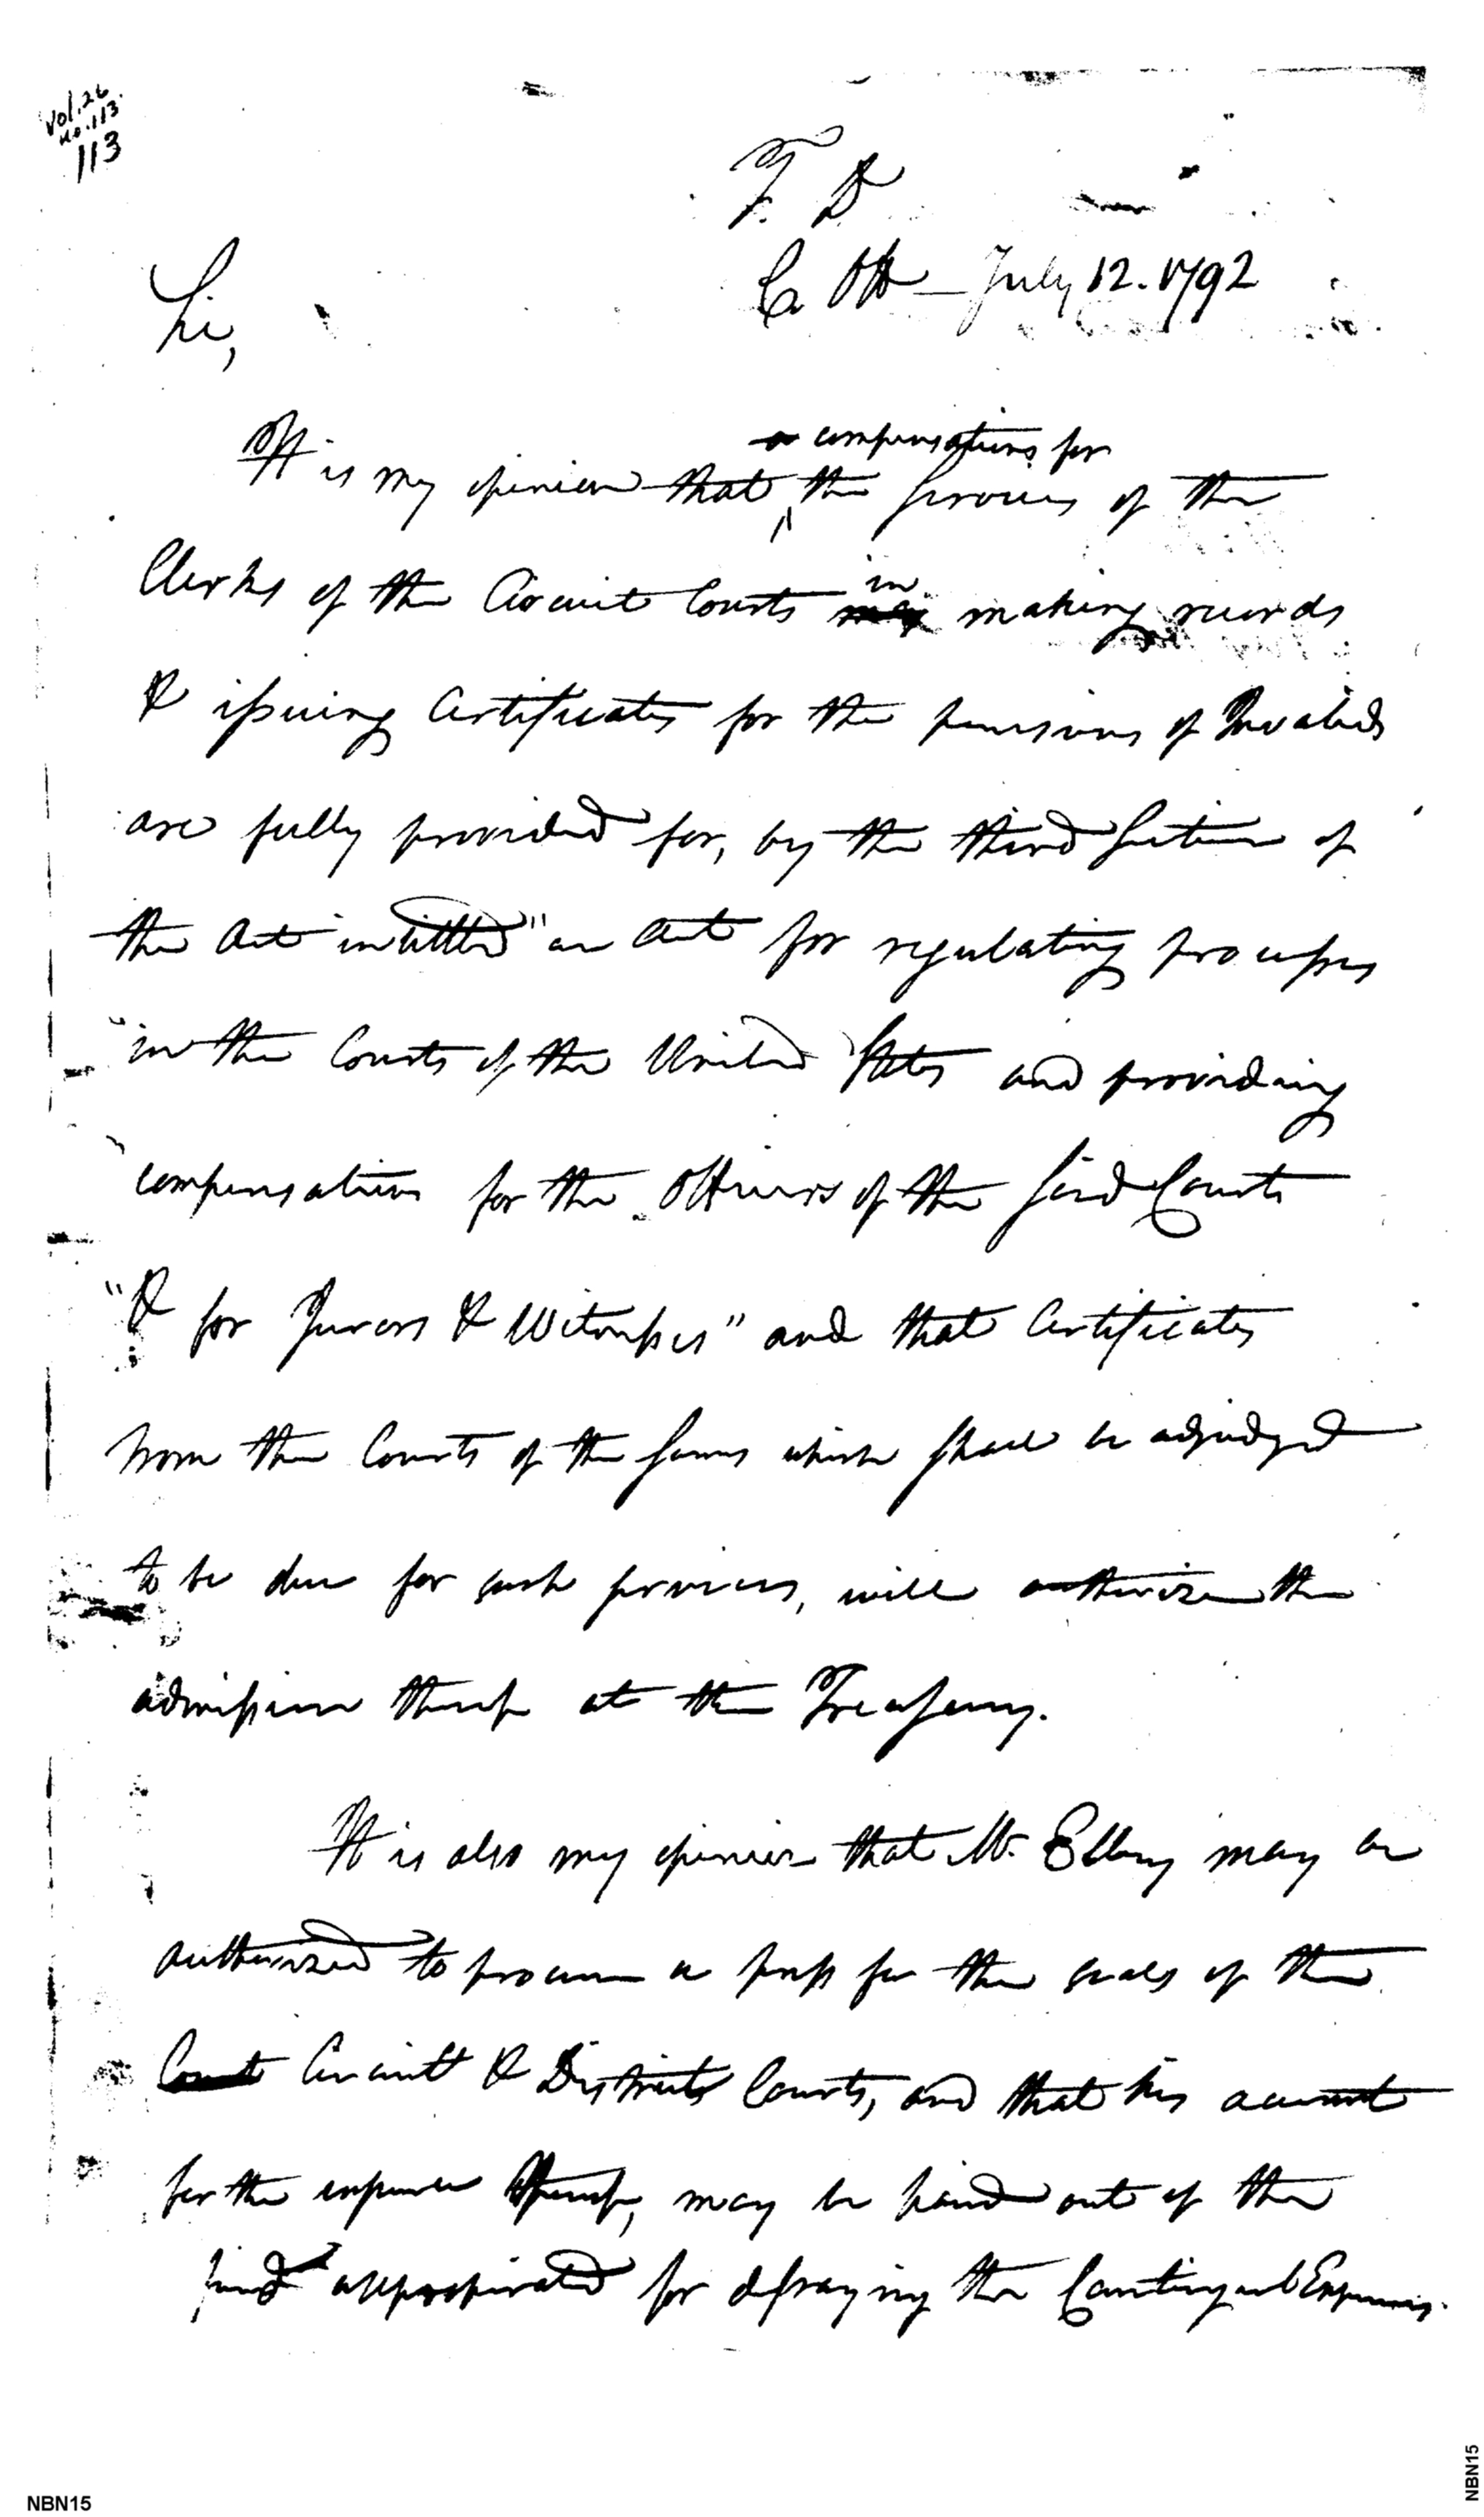 Vol. 26
No. 113
113
T. D
C. Off – July 12. 1792
Sir,
a compensations for
It is my opinion that the services of the
Clerks of the Circuit Courts in making records
& issuing Certificates for the pensions of Invalids
are fully provided for, by the third Section of
the Act intitled "an Act for regulating processes
"in the Courts of the United States and providing
"compensations for the Officers of the said Courts
"& for Jurors & Witnesses" and that Certificates
from the Courts of the sums which shall be adjudged
to be due for such services, will authorize the
admission thereof at the Treasury.
It is also my opinion that Mr. Ellery may be
authorized to procure a press for the seals of the
Court Circuit & District Courts, and that his account
for the expence thereof, may be paid out of the
fund appropriated for defraying the Contingent Expences.
NBN15
NBN15